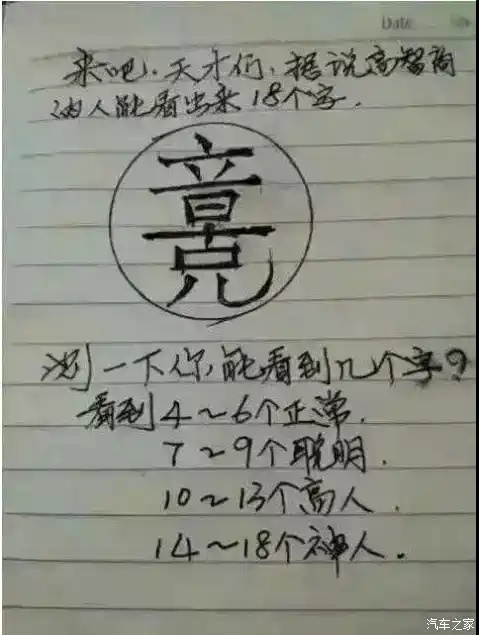 Date
来吧.天才们.据说高智商
的人能看出来18个字.
测一下你能看到几个字?
看到4～6个正常.
7～9个聪明.
10～13个高人.
14～18个神人.
汽车之家